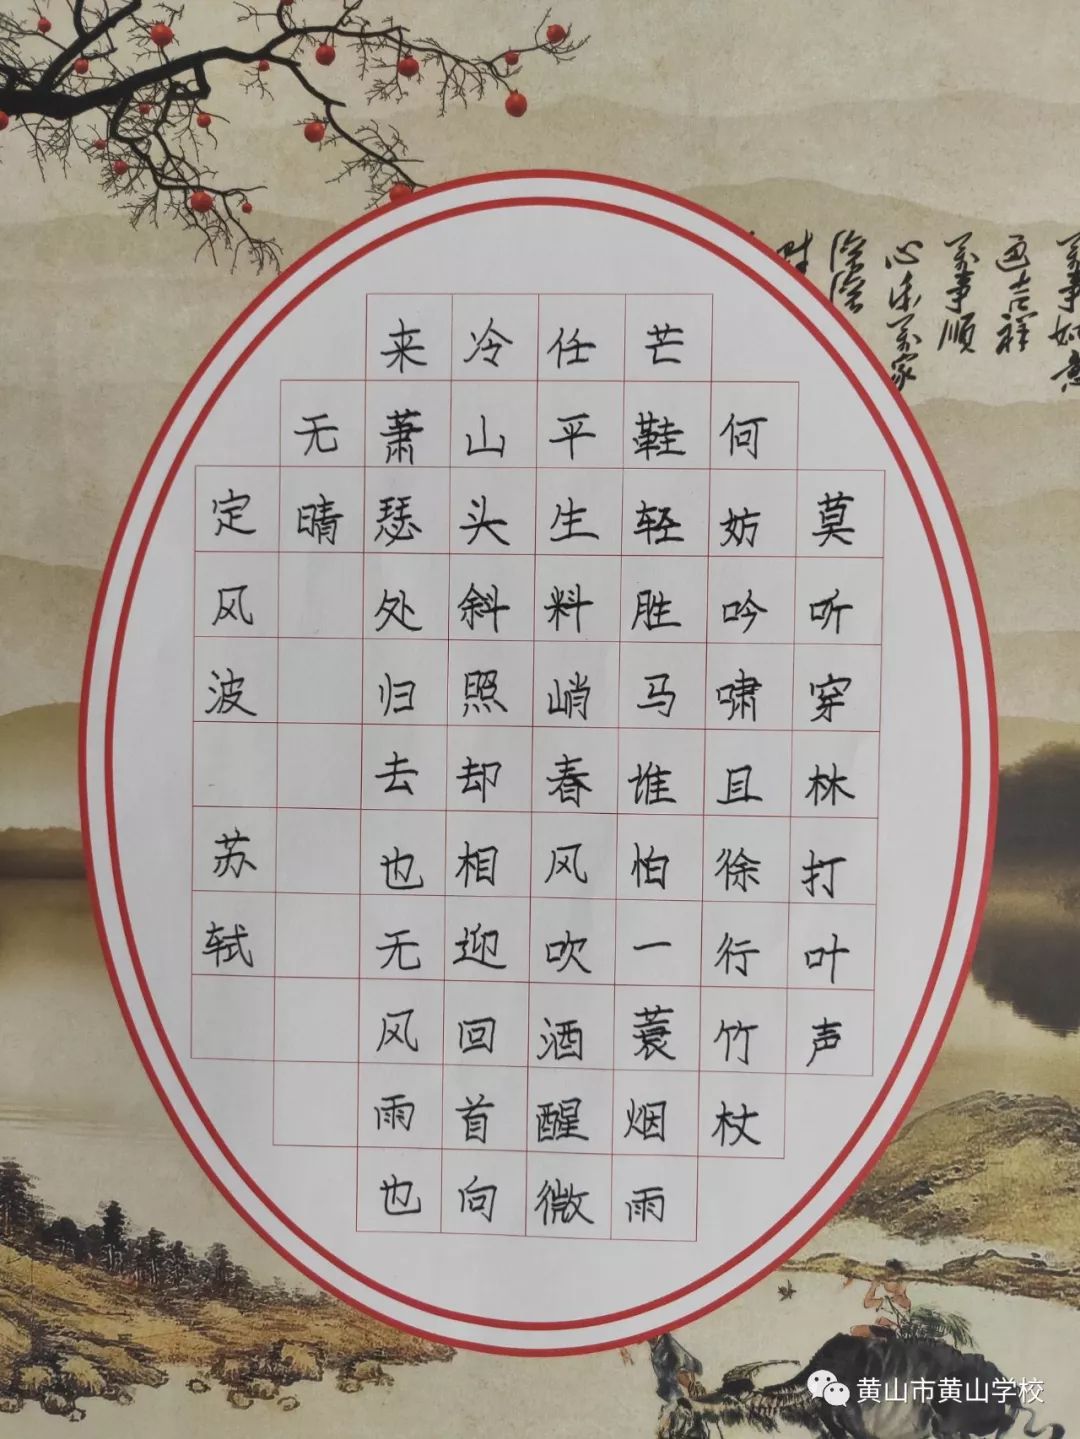 莫听穿林打叶声
何妨吟啸且徐行竹杖
芒鞋轻胜马谁怕一蓑烟雨
任平生料峭春风吹酒醒微
冷山头斜照却相迎回首向
来萧瑟处归去也无风雨也
无晴
定风波
苏轼
万事如意
画吉祥
万事顺
心乐万家
黄山市黄山学校